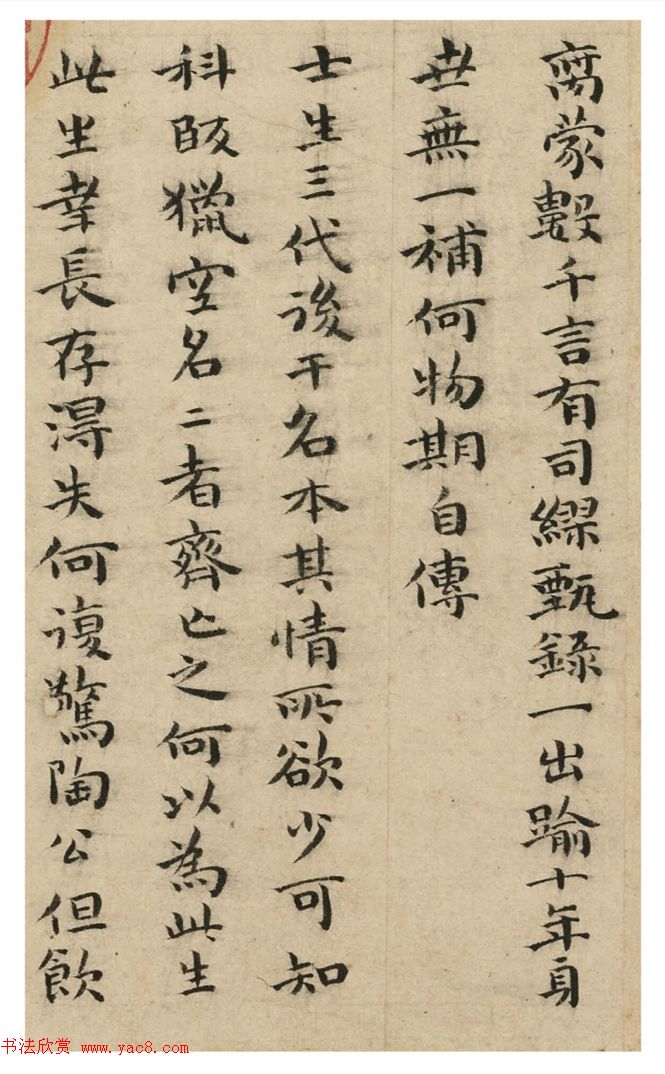 离蒙數千言有司繆甄錄一出踰十年身
世無一補何物期自傳
士生三代後干名本其情所欲少可知
科臤獵空名二者齊亡之何以為此生
此生幸長存得失何復驚陶公但飲
书法欣赏 www.yac8.com